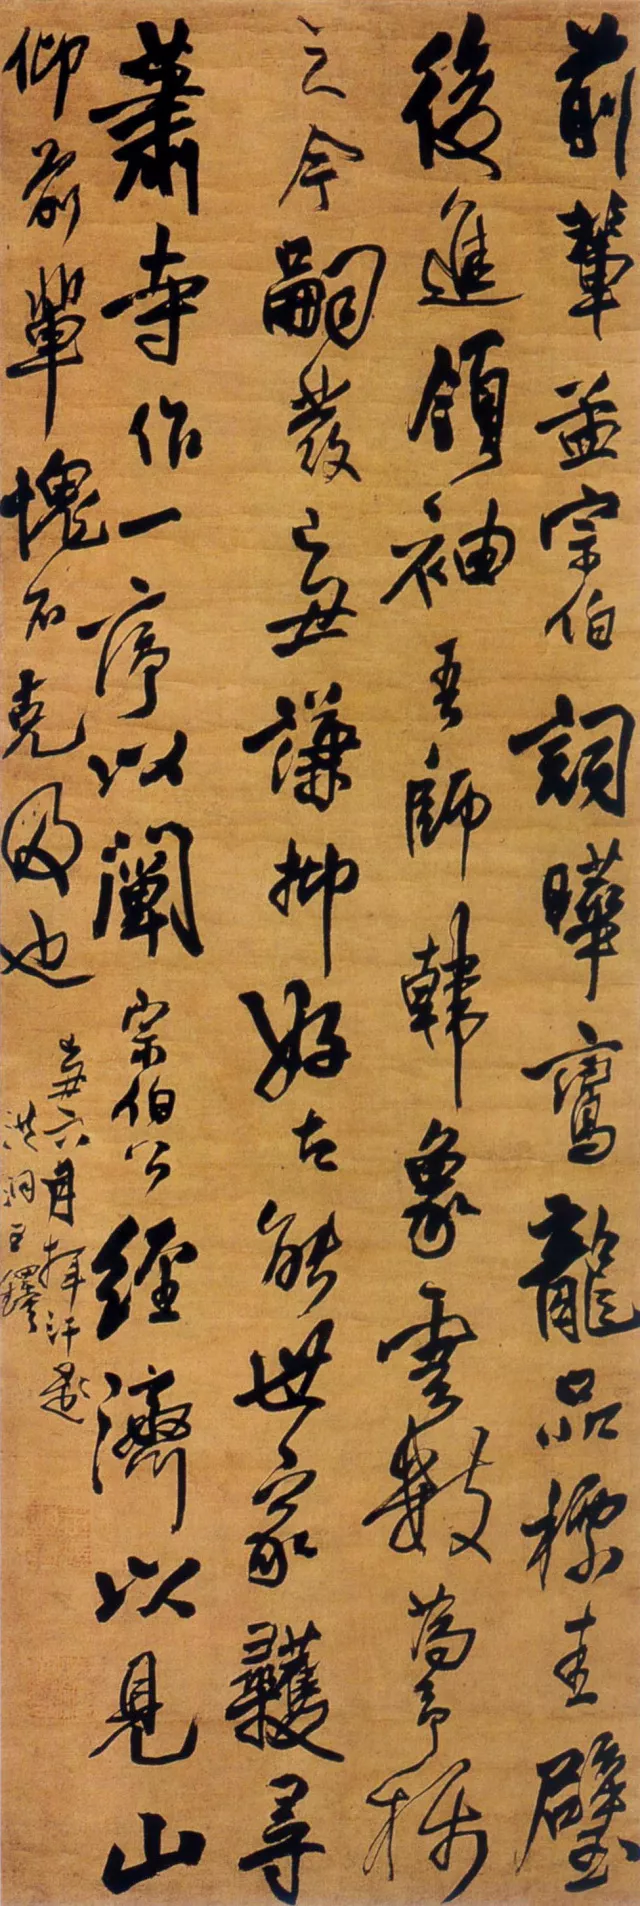 前輩孟宗伯詞曄鸞龍品標圭璧
後進領袖吾師韓象雲數為予稱
之今嗣發己丑謙抑好古能世家蠖尋
蕭寺作一序以闡宗伯公經濟以見山
仰前輩愧不克及也
丑六月揮汗題
洪洞王鐸